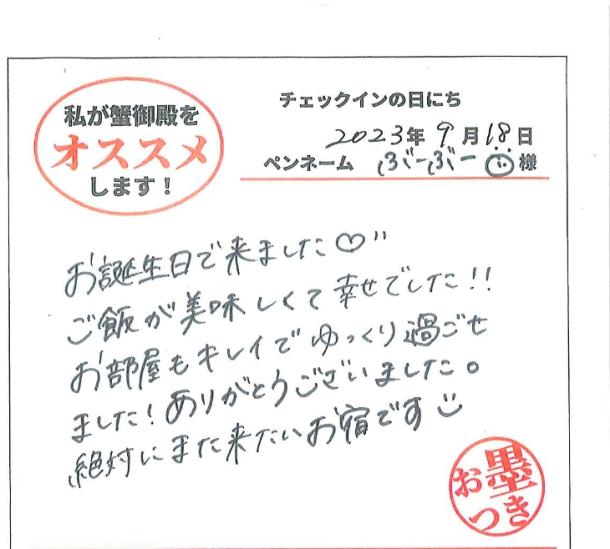 私が蟹御殿を
オススメ
します!
チェックインの日にち
2023年9月18日
ペンネーム ぶーぶー様
お誕生日で来ました♡
ご飯が美味しくて幸せでした!!
お部屋もキレイでゆっくり過ごせ
ました!ありがとうございました。
絶対にまた来たいお宿です
お墨
つき